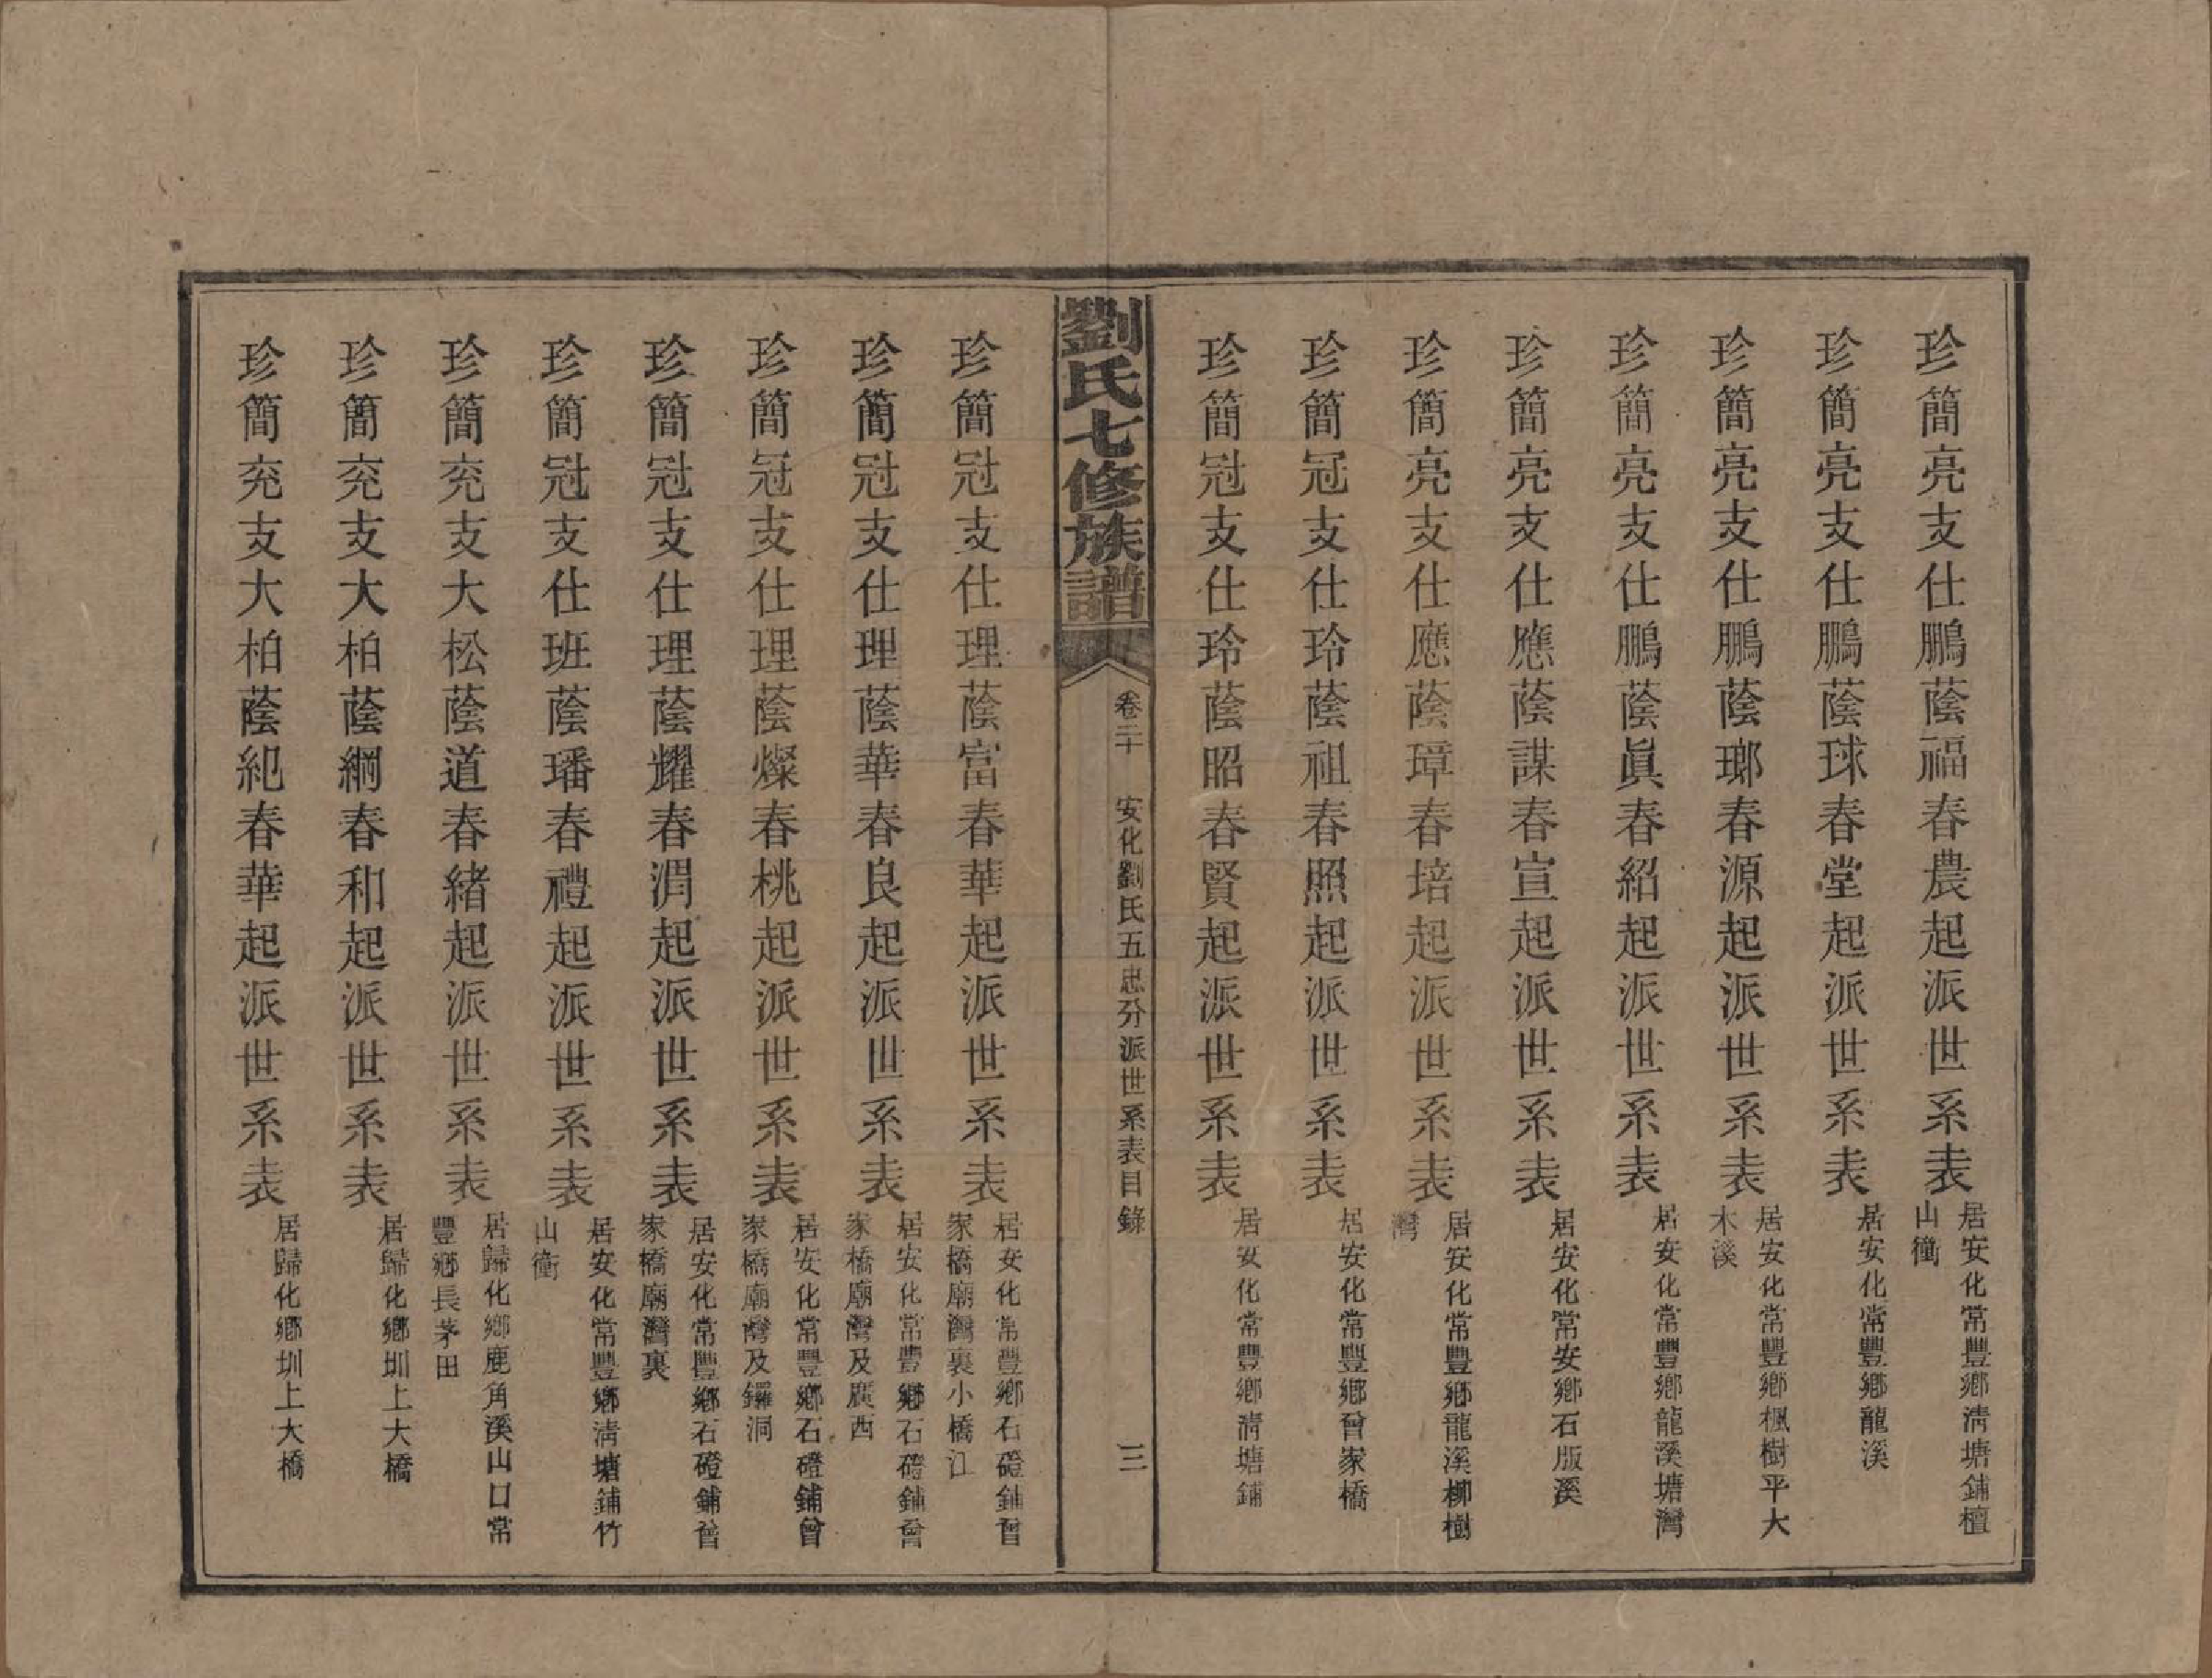 珍簡亮支仕鵬蔭福春農起派世系表 居安化常豐鄉清塘鋪檀山衝
珍簡亮支仕鵬蔭球春堂起派世系表 居安化常豐鄉龍溪
珍簡亮支仕鵬蔭瑯春源起派世系表 居安化常豐鄉楓樹平大木溪
珍簡亮支仕鵬蔭眞春紹起派世系表 居安化常豐鄉龍溪塘灣
珍簡亮支仕應蔭謀春宣起派世系表 居安化常安鄉石版溪
珍簡亮支仕應蔭璋春培起派世系表 居安化常豐鄉龍溪柳樹灣
珍簡冠支仕玲蔭祖春照起派世系表 居安化常豐鄉曾家橋
珍簡冠支仕玲蔭昭春賢起派世系表 居安化常豐鄉清塘鋪
劉氏七修族譜 卷二十 安化劉氏五忠分派世系表目錄 三
珍簡冠支仕理蔭富春華起派世系表 居安化常豐鄉石磴鋪曾家橋廟灣裏小橋江
珍簡冠支仕理蔭華春良起派世系表 居安化常豐鄉石磴鋪曾家橋廟灣及廣西
珍簡冠支仕理蔭燦春桃起派世系表 居安化常豐鄉石磴鋪曾家橋廟灣及鑼洞
珍簡冠支仕理蔭耀春渭起派世系表 居安化常豐鄉石磴鋪曾家橋廟灣裏
珍簡冠支仕班蔭璠春禮起派世系表 居安化常豐鄉清塘鋪竹山衝
珍簡充支大松蔭道春緒起派世系表 居歸化鄉鹿角溪山口常豐鄉長茅田
珍簡充支大柏蔭綱春和起派世系表 居歸化鄉圳上大橋
珍簡充支大柏蔭紀春華起派世系表 居歸化鄉圳上大橋